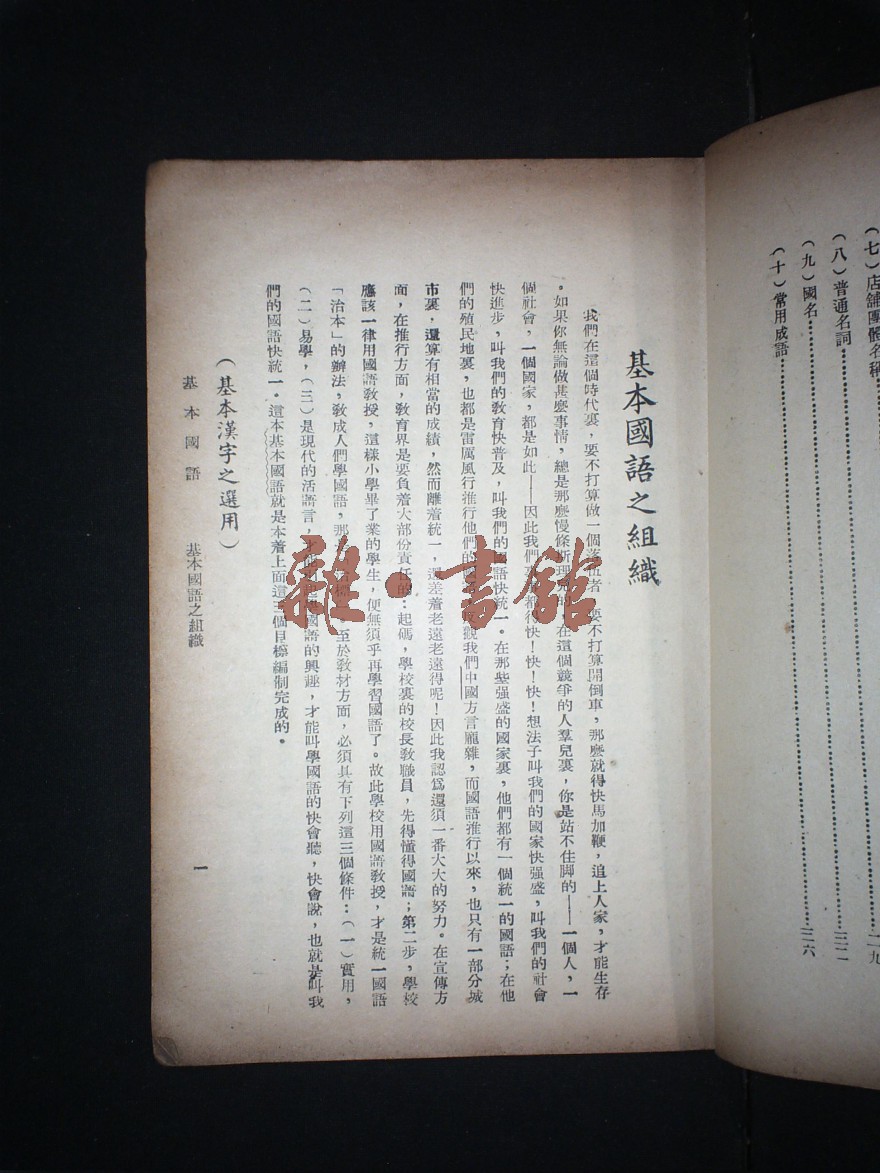 (七)店舖團體名稱………………二九
(八)普通名詞………………三二
(九)國名………………
(十)常用成語………………三六
基本國語之組織
我們在這個時代裏,要不打算做一個落伍者,要不打算開倒車,那麽就得快馬加鞭,追上人家,才能生存
。如果你無論做甚麽事情,總是那麽慢條斯理兒的,在這個競爭的人羣兒裏,你是站不住脚的——一個人,一
個社會,一個國家,都是如此——因此我們事事都得快!快!快!想法子叫我們的國家快强盛,叫我們的社會
快進步,叫我們的敎育快普及,叫我們的國語快統一。在那些强盛的國家裏,他們都有一個統一的國語;在他
們的殖民地裏,也都是雷厲風行推行他們的國語,反觀我們中國方言龐雜,而國語推行以來,也只有一部分城
市裏,還算有相當的成績,然而離着統一,還差着老遠老遠得呢!因此我認爲還須一番大大的努力。在宣傳方
面,在推行方面,敎育界是要負着大部份責任的:起碼,學校裏的校長敎職員,先得懂得國語;第二步,學校
應該一律用國語敎授,這樣小學畢了業的學生,便無須乎再學習國語了。故此學校用國語敎授,才是統一國語
「治本」的辦法,敎成人們學國語,那是治標。至於敎材方面,必須具有下列這三個條件:(一)實用,
(二)易學,(三)是現代的活語言,才能引起學國語的興趣,才能叫學國語的快會聽,快會說,也就是叫我
們的國語快統一。這本基本國語就是本着上面這三個目標編制完成的。
(基本漢字之選用)
基本國語 基本國語之組織 一
雜·書館